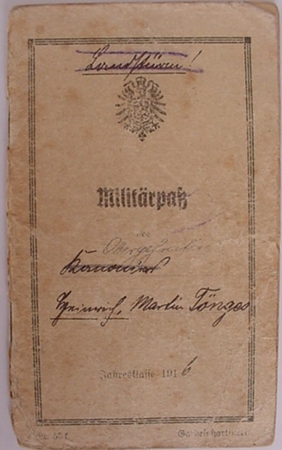 Landsturm!
Militärpaß
des
Obergefreiten
Kanonier
Heinrich, Martin Tönges
Jahresklasse 1916